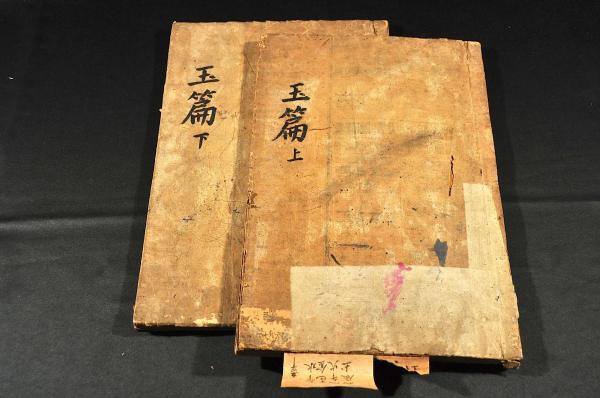 玉篇
下
玉篇
上